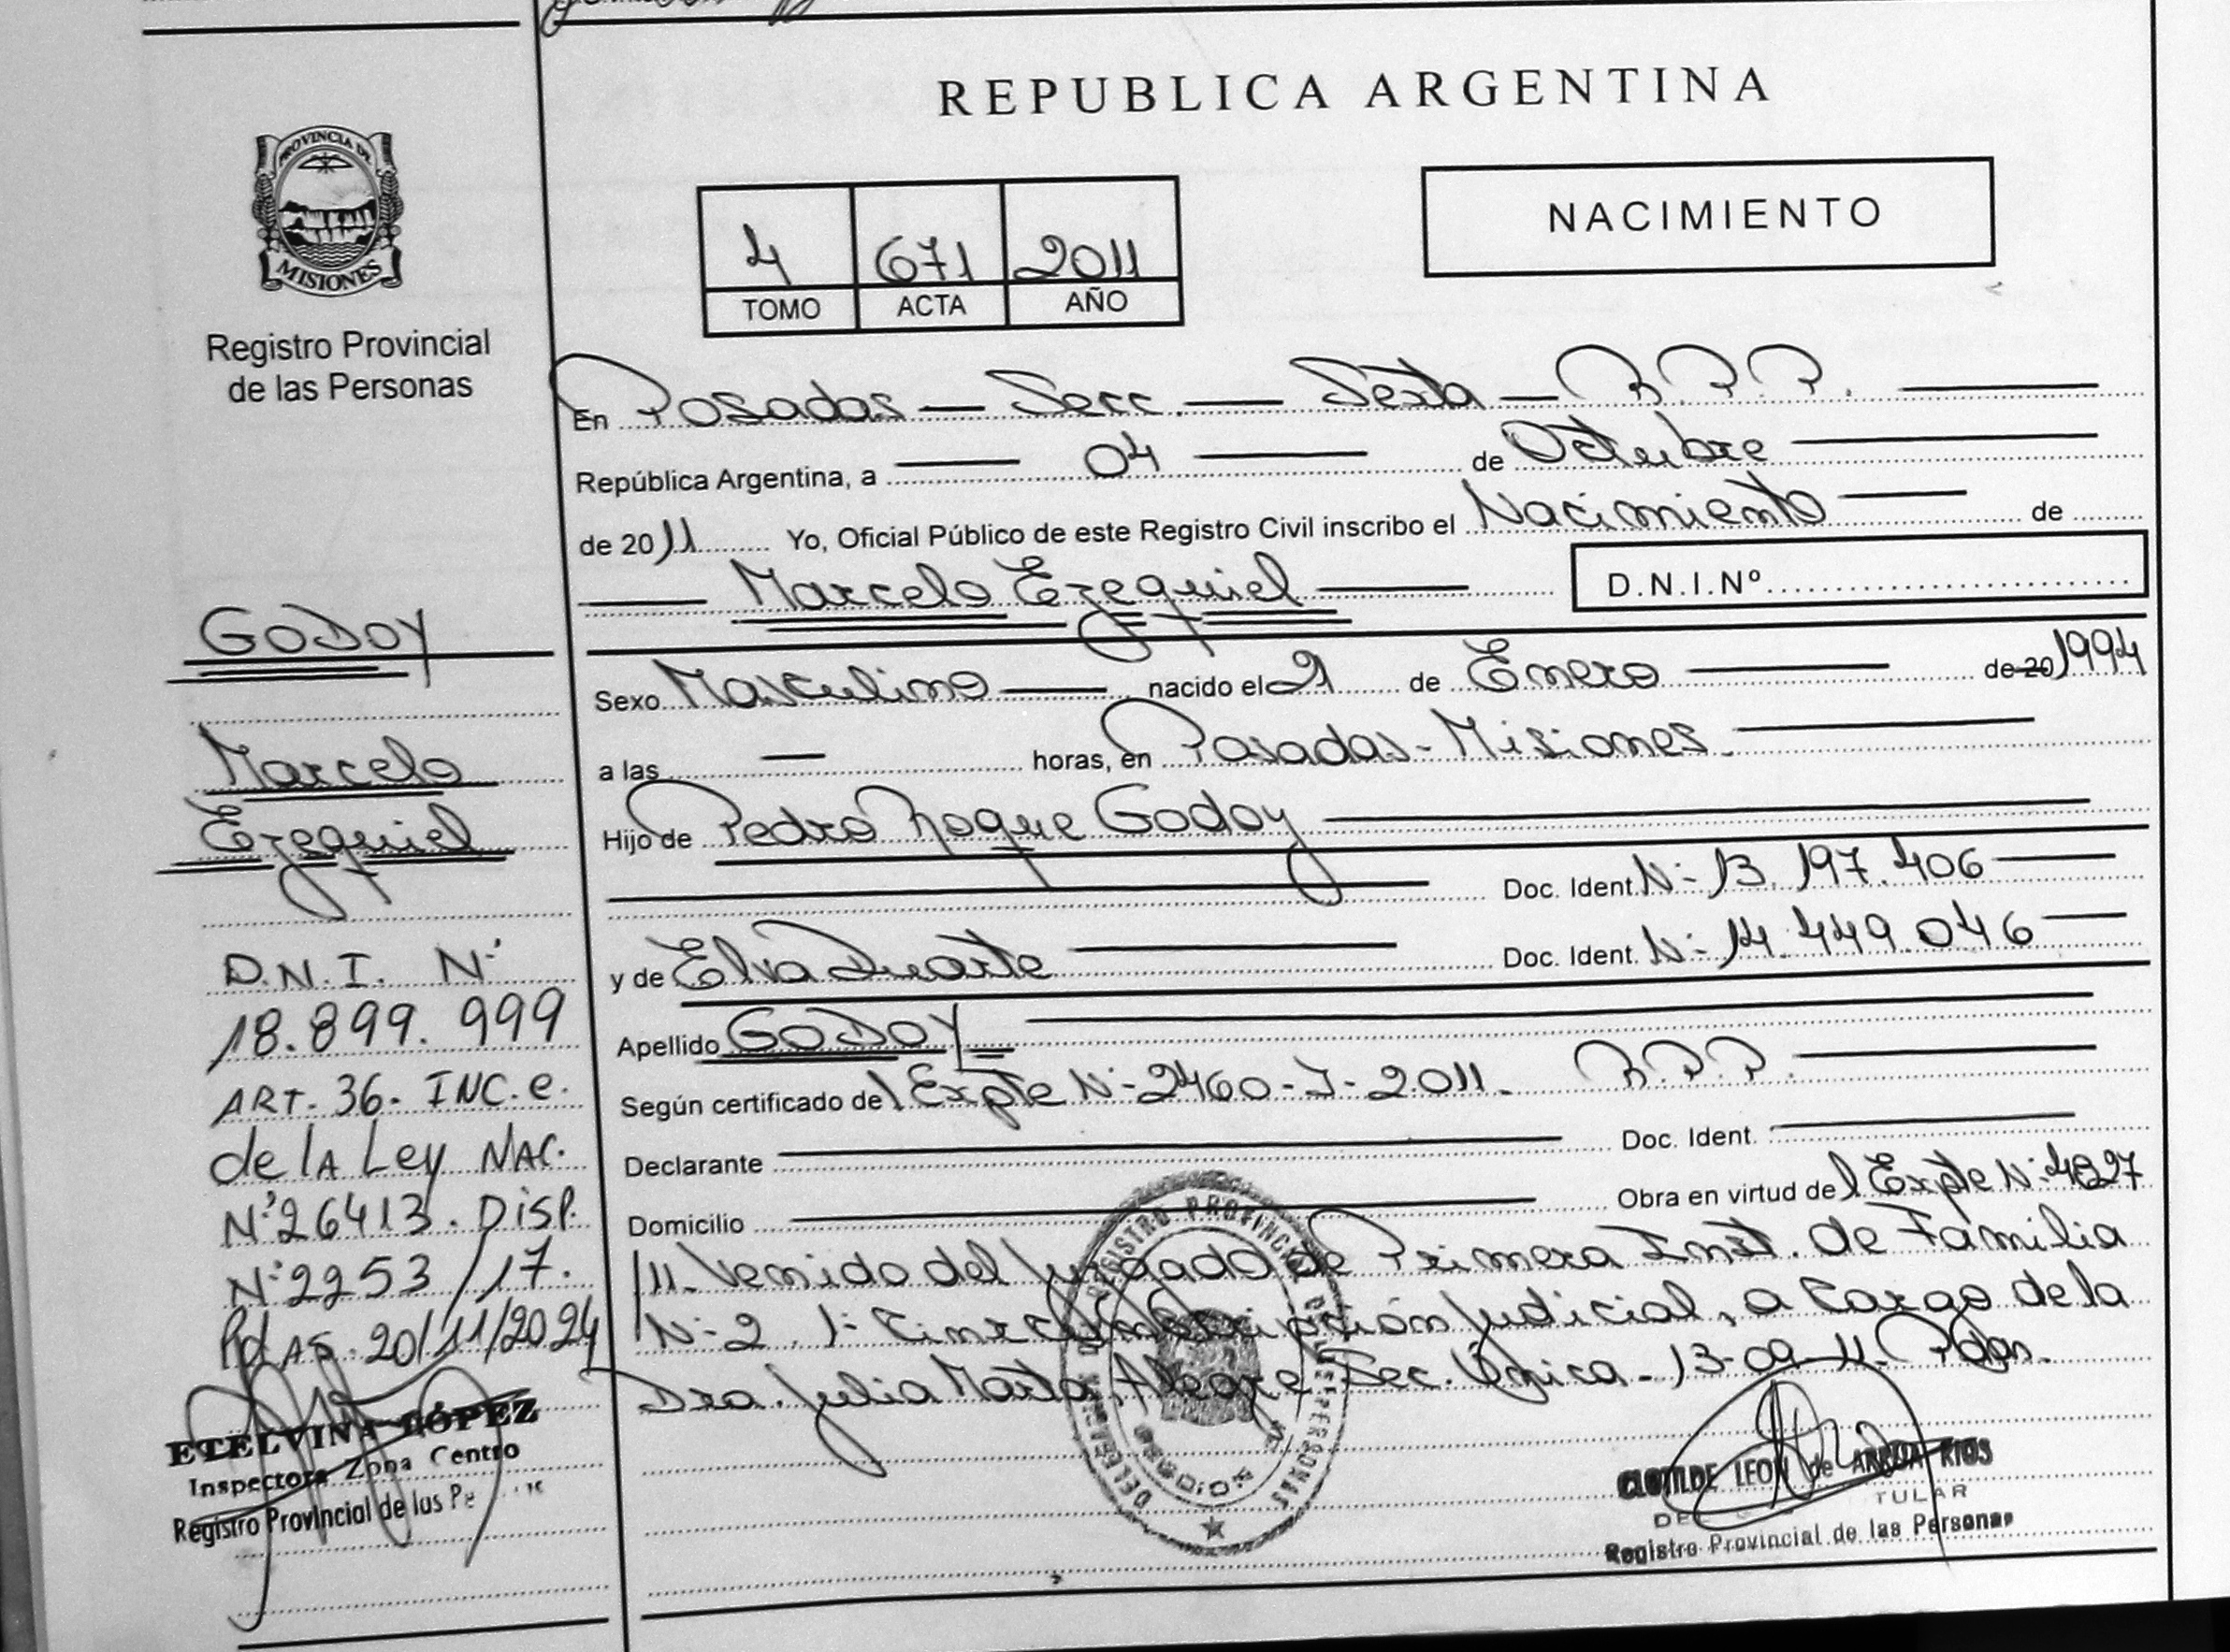 REPUBLICA ARGENTINA
PROVINCIA DE
MISIONES
Registro Provincial
de las Personas
4 671 2011
TOMO ACTA AÑO
NACIMIENTO
En Posadas — Secc. — Sexta — R.P.P.
República Argentina, a — 04 — de Octubre
de 2011 Yo, Oficial Público de este Registro Civil inscribo el Nacimiento de
Marcelo Ezequiel
D.N.I.Nº
Sexo Masculino nacido el 21 de Enero de 20 1994
a las — horas, en Posadas - Misiones.
Hijo de Pedro Roque Godoy
Doc. Ident. Nº 13.197.406
y de Elva Duarte Doc. Ident. Nº 14.449.046
Apellido GODOY
Según certificado de l Expte Nº 2460-J-2011. R.P.P.
Declarante Doc. Ident.
Domicilio Obra en virtud del Expte Nº 4827
/11. Venido del Juzgado de Primera Inst. de Familia
Nº 2. 1º Judicial, a Cargo de la
Dra. Julia Marta Alegre Sec. Única - 13-09-11. Pdas.
GODOY
Marcelo
Ezequiel
D.N.I. Nº
18.899.999
ART. 36. INC. e.
de la Ley NAC.
Nº 26413. DISP.
Nº 2253/17.
PdAS. 20/11/2024
ETELVINA LÓPEZ
Inspectora Zona Centro
Registro Provincial de las
REGISTRO PROVINCIAL DE LAS PERSONAS
CLOTILDE LEON de RIOS
TULAR
Registro Provincial de las Personas